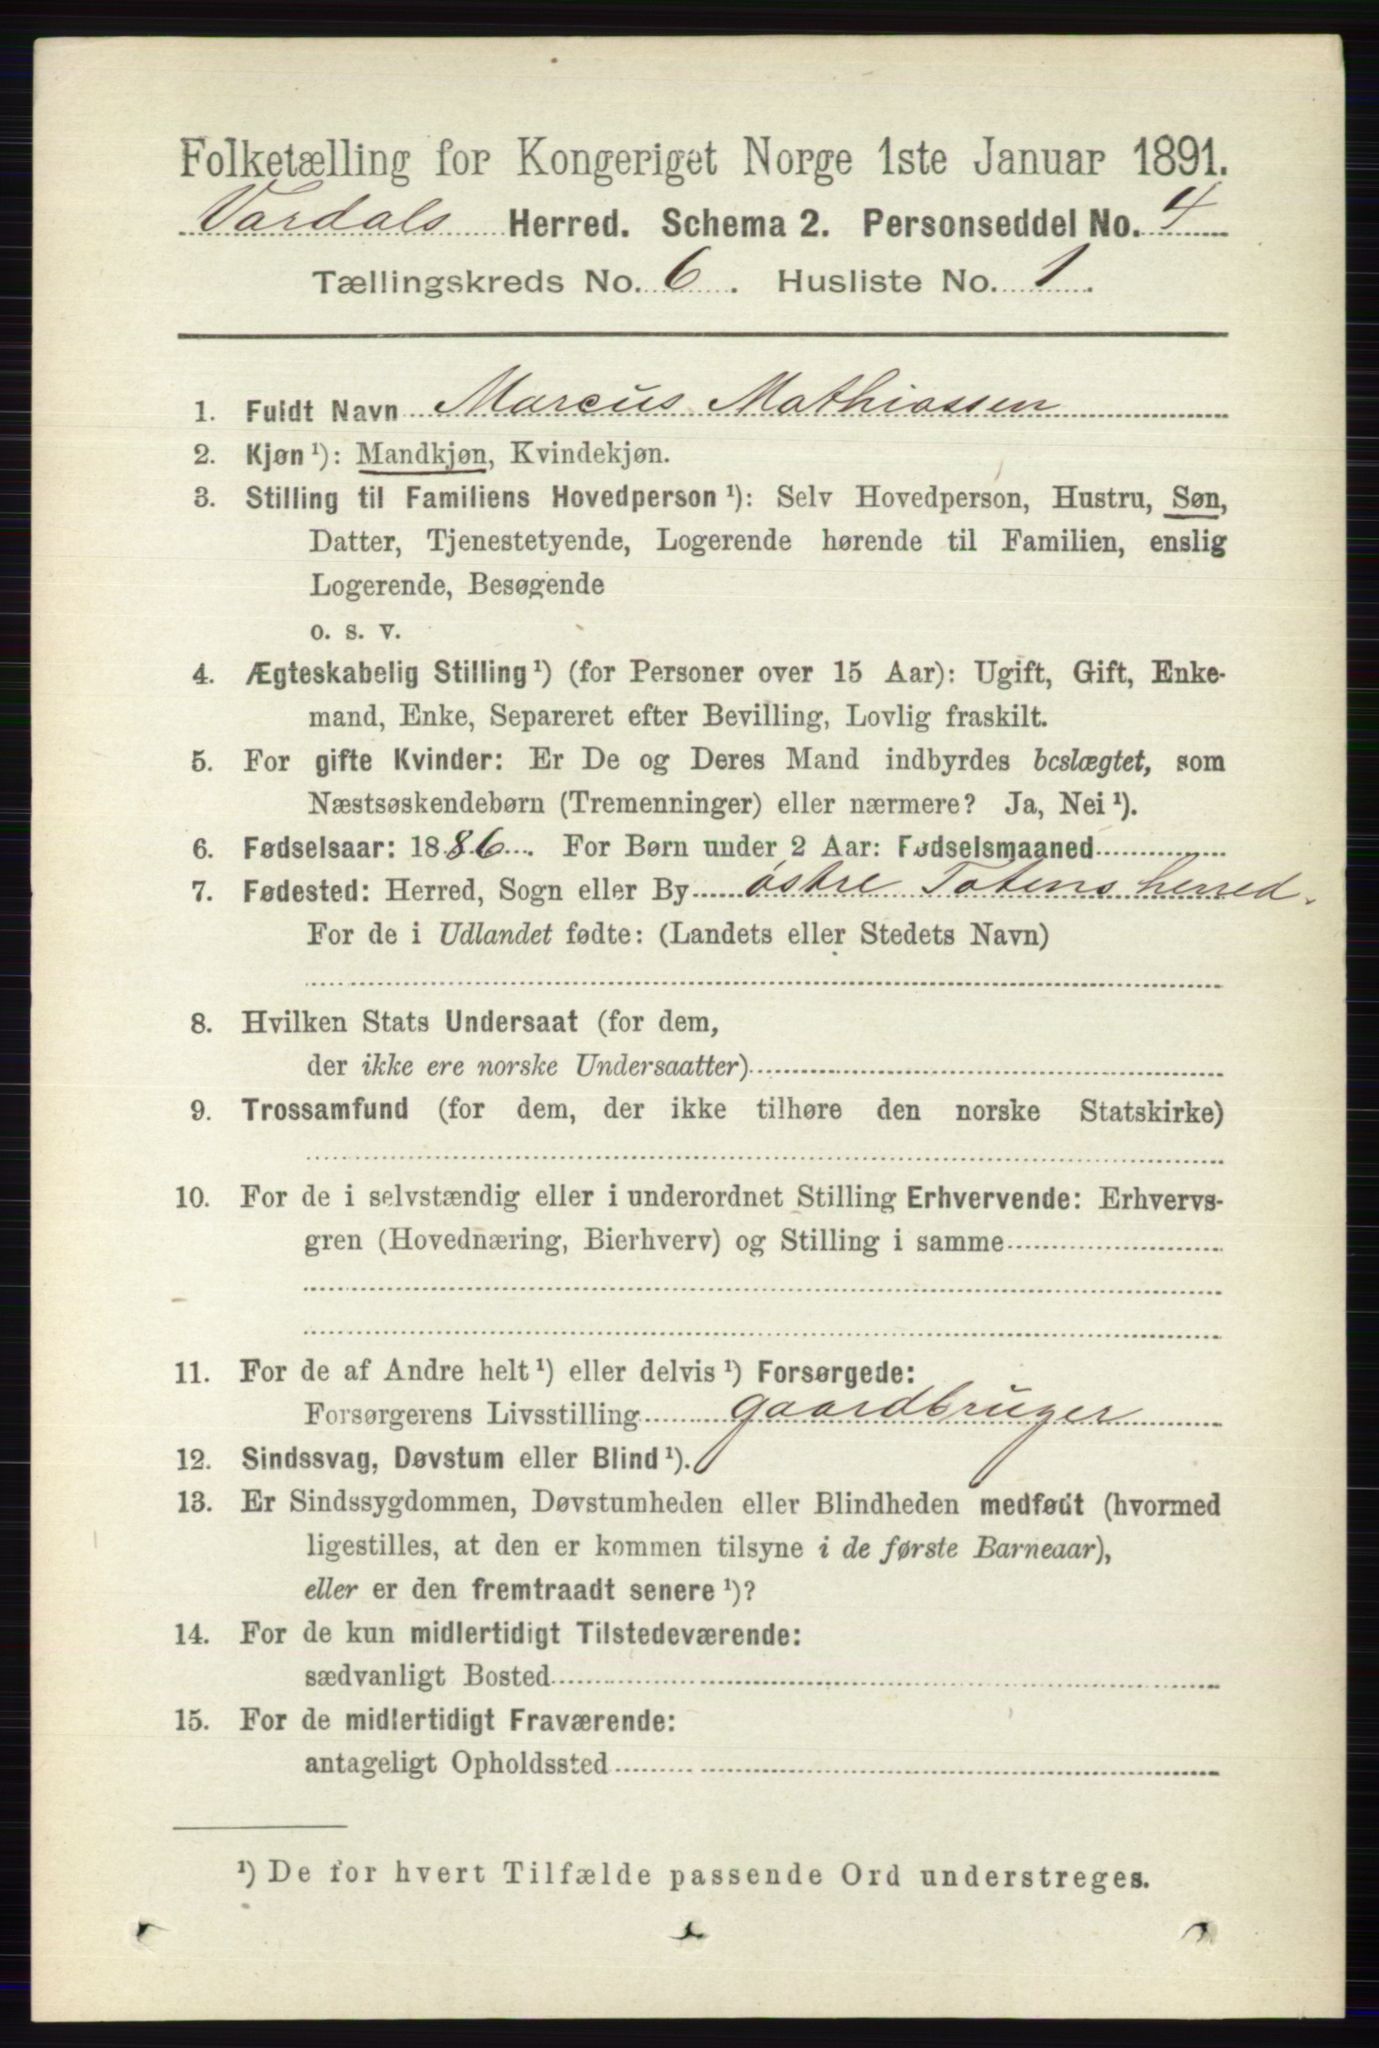 Folketælling for Kongeriget Norge 1ste Januar 1891.
Vardals Herred. Schema 2. Personseddel No. 4
Tællingskreds No. 6. Husliste No. 1.
1. Fuldt Navn Marcus Mathiassen
2. Kjøn ¹): Mandkjøn, Kvindekjøn.
3. Stilling til Familiens Hovedperson ¹): Selv Hovedperson, Hustru, Søn,
Datter, Tjenestetyende, Logerende hørende til Familien, enslig
Logerende, Besøgende
o. s. v.
4. Ægteskabelig Stilling ¹) (for Personer over 15 Aar): Ugift, Gift, Enke-
mand, Enke, Separeret efter Bevilling, Lovlig fraskilt.
5. For gifte Kvinder: Er De og Deres Mand indbyrdes beslægtet, som
Næstsøskendebørn (Tremenninger) eller nærmere? Ja, Nei ¹).
6. Fødselsaar: 1886. For Børn under 2 Aar: Fødselsmaaned
7. Fødested: Herred, Sogn eller By østre Totens herred.
For de i Udlandet fødte: (Landets eller Stedets Navn)
8. Hvilken Stats Undersaat (for dem,
der ikke ere norske Undersaatter)
9. Trossamfund (for dem, der ikke tilhøre den norske Statskirke)
10. For de i selvstændig eller i underordnet Stilling Erhvervende: Erhvervs-
gren (Hovednæring, Bierhverv) og Stilling i samme
11. For de af Andre helt ¹) eller delvis ¹) Forsørgede:
Forsørgerens Livsstilling gaardbruger
12. Sindssvag, Døvstum eller Blind ¹).
13. Er Sindssygdommen, Døvstumheden eller Blindheden medfødt (hvormed
ligestilles, at den er kommen tilsyne i de første Barneaar),
eller er den fremtraadt senere ¹)?
14. For de kun midlertidigt Tilstedeværende:
sædvanligt Bosted
15. For de midlertidigt Fraværende:
antageligt Opholdssted
¹) De for hvert Tilfælde passende Ord understreges.